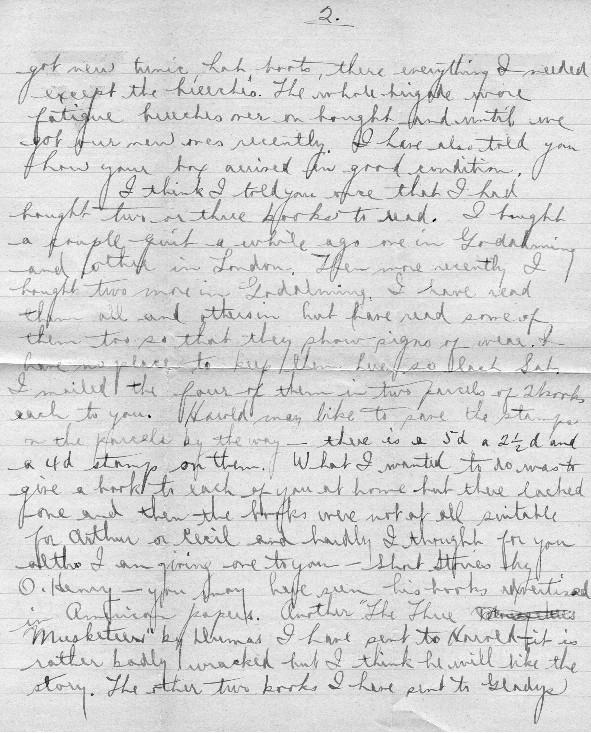 2.
got new tunic, hat, boots, there everything I needed
except the breeches. The whole brigade wore
fatigue breeches over on bought and until we
got our new ones recently. I have also told you
how your box arrived in good condition.
I think I told you once that I had
bought two or three books to read. I bought
a couple quit a while ago one in Godalming
and other in London. Then more recently I
bought two more in Godalming. I have read
them all and others in hut have read some of
them too so that they show signs of wear. I
have no place to keep them here so last Sat.
I mailed the four of them in two parcels of 2 books
each to you. Harold may like to save the stamps
on the parcels by the way — there is a 5d a 2½d and
a 4d stamp on them. What I wanted to do was to
give a book to each of you at home but there lacked
one and then the books were not at all suitable
for Arthur or Cecil and hardly I thought for you
altho I am giving one to you — Short Stories by
O. Henry — you may have seen his books advertised
in American papers. Another "The Three
Musketeers" by Dumas I have sent to Harold — it is
rather badly wracked but I think he will like the
story. The other two books I have sent to Gladys